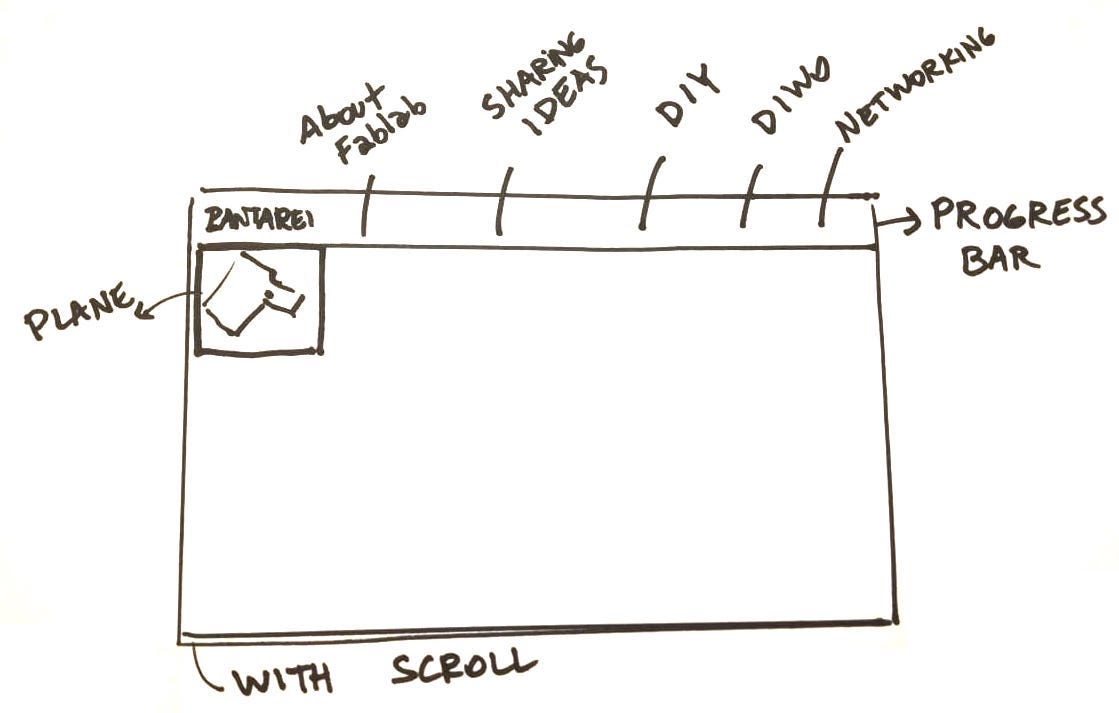 About
Fablab
SHARING
IDEAS
DIY
DIWO
NETWORKING
PANTAREI
PROGRESS
BAR
PLANE
WITH SCROLL